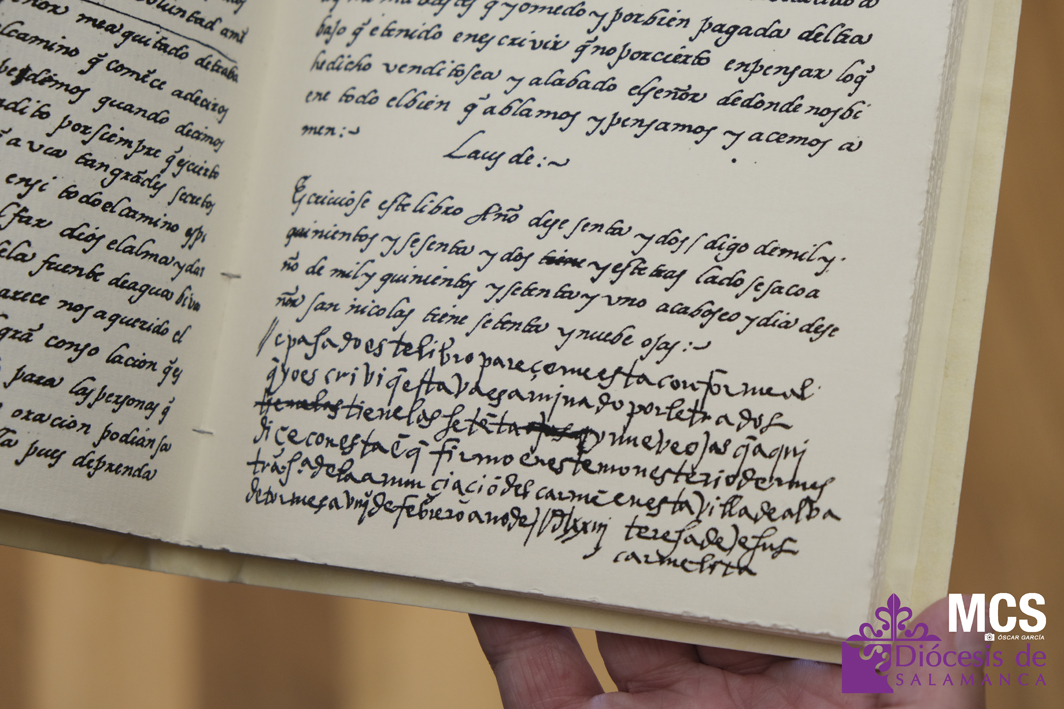 oluntad ami
mea quitado detraba
camino q̄ comēce adeciros
perdemos quando decimos
dito porsiempre q̄ escierto
tan grādes secretos
ensi todo el camino espi
far dios el alma y dar
la fuente de agua biva
arece nos a querido el
grā conso lacion q̄ es
para las personas q̄
oracion podian sa
pues deprenda
q̄ yo me do y por bien pagada del tra
bajo q̄ e tenido en escrivir q̄ no por cierto en pensar lo q̄
he dicho venditosea y alabado el señor de donde nos bi
ene todo el bien q̄ ablamos y pensamos y acemos a
men:~
Laus de:~
Escriviose este libro Año de sesenta y dos digo de mil y
quinientos y sesenta y dos y este tras lado se saco a
ño de mil y quinientos y setenta y uno acabose o y dia de se
ñor san nicolas tiene setenta y nuebe ojas:~
// e pasado este libro pareçeme esta conforme al
q̄ yo escrivi q̄ estava esaminado por letrados
tiene las setēta y nueve ojas q̄ aqui
diçe con esta ē q̄ firmo en este monesterio de nues
tra s.ª de la anunçiaçiō del carmē en esta villa de alva
de tormes a viij de febrero año de MDlxxiij teresa de Jesus
carmelita
MCS
ÓSCAR GARCÍA
Diócesis de
SALAMANCA